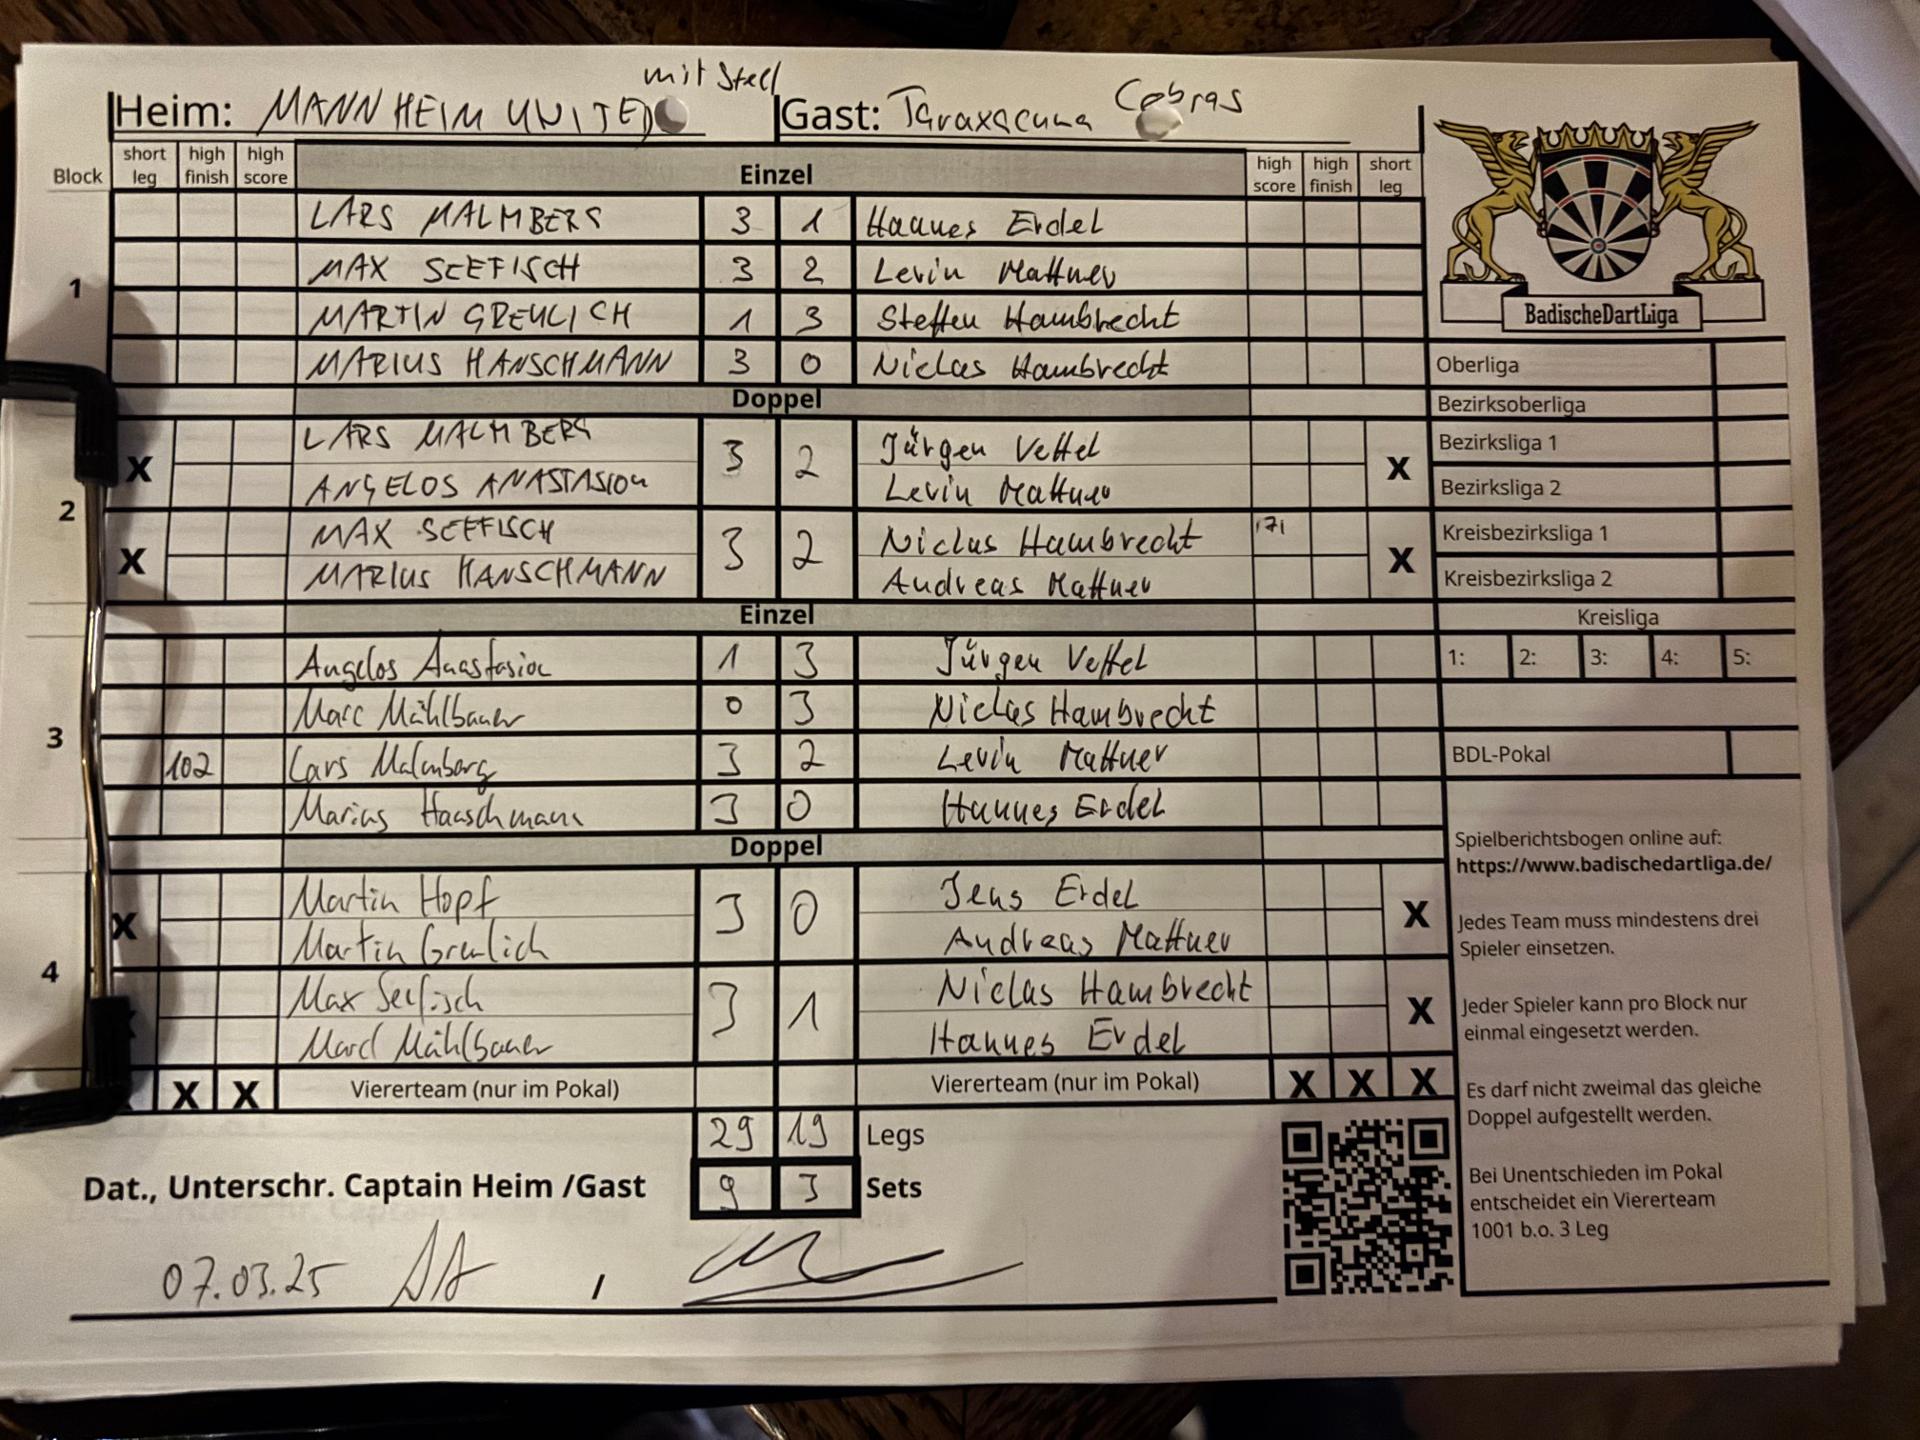 mit Stell
Heim: MANNHEIM UNITED Gast: Taraxacuma Cobras
Block short leg high finish high score Einzel high score high finish short leg
1
LARS MALMBERG 3 1 Hannes Erdel
MAX SEEFISCH 3 2 Levin Mattner
MARTIN GREULICH 1 3 Steffen Hambrecht
MARIUS HANSCHMANN 3 0 Niclas Hambrecht
Doppel
2
LARS MALMBERG 3 2 Jürgen Vettel
X ANGELOS ANASTASIOU Levin Mattner X
MAX SEEFISCH 3 2 Niclas Hambrecht 171
X MARIUS HANSCHMANN Andreas Mattner X
Einzel
3
Angelos Anastasiou 1 3 Jürgen Vettel
Marc Mühlbauer 0 3 Niclas Hambrecht
102 Lars Malmberg 3 2 Levin Mattner
Marius Haaschmann 3 0 Hannes Erdel
Doppel
4
Martin Hopf 3 0 Jens Erdel
X Martin Greulich Andreas Mattner X
Max Seefisch 3 1 Niclas Hambrecht
Marc Mühlbauer Hannes Erdel X
X X Viererteam (nur im Pokal) Viererteam (nur im Pokal) X X X
29 19 Legs
Dat., Unterschr. Captain Heim /Gast 9 3 Sets
07.03.25 /
BadischeDartLiga
Oberliga
Bezirksoberliga
Bezirksliga 1
Bezirksliga 2
Kreisbezirksliga 1
Kreisbezirksliga 2
Kreisliga
1: 2: 3: 4: 5:
BDL-Pokal
Spielberichtsbogen online auf:
https://www.badischedartliga.de/
Jedes Team muss mindestens drei
Spieler einsetzen.
Jeder Spieler kann pro Block nur
einmal eingesetzt werden.
Es darf nicht zweimal das gleiche
Doppel aufgestellt werden.
Bei Unentschieden im Pokal
entscheidet ein Viererteam
1001 b.o. 3 Leg